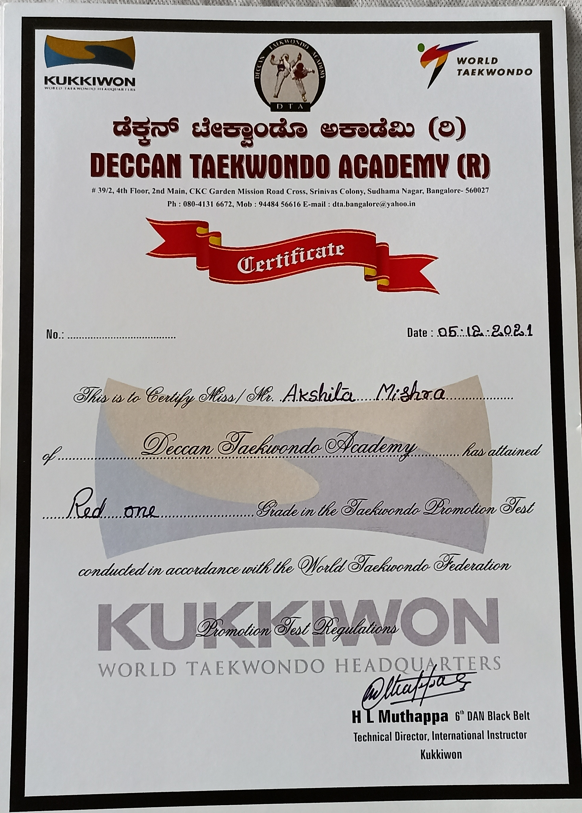 KUKKIWON
WORLD TAEKWONDO HEADQUARTERS
DECCAN TAEKWONDO ACADEMY
DTA
WORLD
TAEKWONDO
ಡೆಕ್ಕನ್ ಟೇಕ್ವಾಂಡೊ ಅಕಾಡೆಮಿ (ರಿ)
DECCAN TAEKWONDO ACADEMY (R)
# 39/2, 4th Floor, 2nd Main, CKC Garden Mission Road Cross, Srinivas Colony, Sudhama Nagar, Bangalore- 560027
Ph : 080-4131 6672, Mob : 94484 56616 E-mail : dta.bangalore@yahoo.in
Certificate
No.: ..............................
Date : 05.12.2021
This is to Certify Miss/Mr. Akshita Mishra
of Deccan Taekwondo Academy has attained
Red one Grade in the Taekwondo Promotion Test
conducted in accordance with the World Taekwondo Federation
KUKKIWON
Promotion Test Regulations
WORLD TAEKWONDO HEADQUARTERS
H L Muthappa 6th DAN Black Belt
Technical Director, International Instructor
Kukkiwon